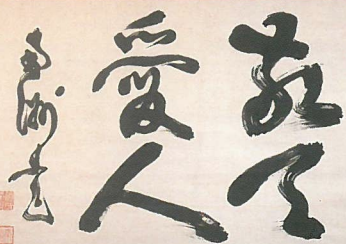 敬天
愛人
南洲書